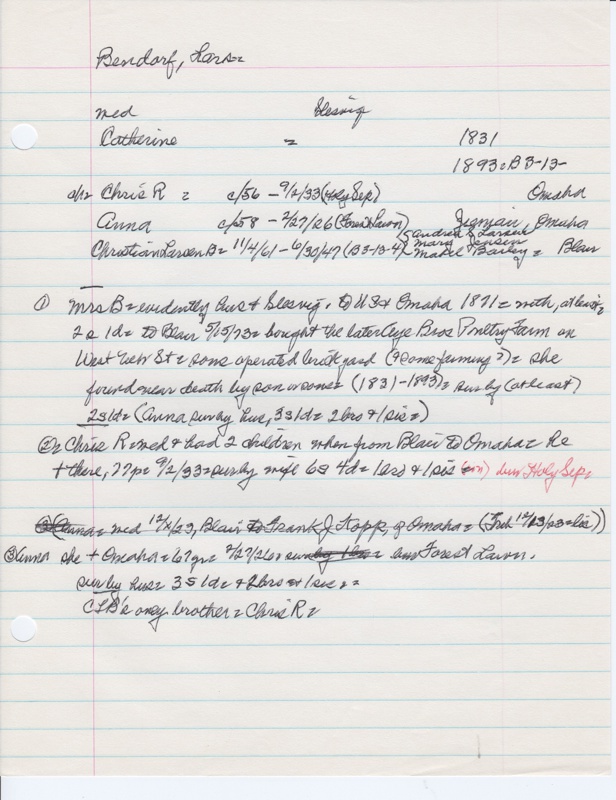 Bendorf, Lars =
med Slesvig
Catherine = 1831
1893 = B3-13-
ch= Chris R = c/56 - 9/2/33 (Holy Sep) Omaha
Anna c/58 - 2/27/26 (Forest Lawn) Omaha
Andrea S Larsen
Mary Jensen
Christian Larsen B = 11/4/61 - 6/30/47 (B3-13-4) Mabel Bailey = Blair
① Mrs B = evidently hus + Slesvig. to US + Omaha 1871 = with, at least =
2 s 1 d = to Blair 5/15/73 = bought the later Bros Poultry Farm on
West St = sons operated brickyard (& some farming?) = she
found near death by son or sons = (1831-1893) = sur by (at least)
2 s 1 d = (Anna sur by hus, 3 s 1 d = 2 bros & 1 sis =)
② = Chris R = med & had 2 children when from Blair to Omaha = he
+ there, 77 p = 9/2/33 = sur by wife 6 s 4 d = 1 bro & 1 sis = bur Holy Sep =
③ Anna = med 12/2/23, Blair to Frank J Kopp, of Omaha = (Trib 12/13/23 = lic)
③ Anna she + Omaha = 67 yr = 2/27/26 = sur by 1 bro = bur Forest Lawn.
sur by hus = 3 s 1 d = & 2 bros & 1 sis =
CLB's only brother = Chris R =